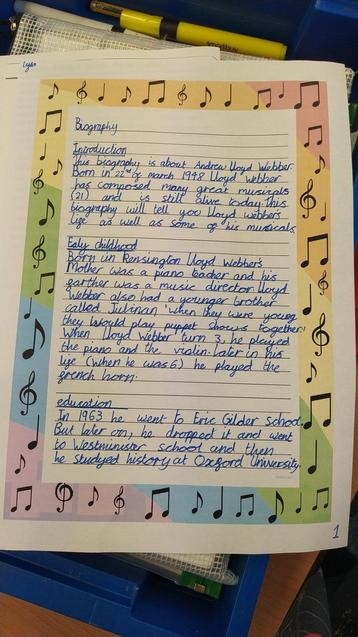 Biography
Introduction
This biography is about Andrew Lloyd Webber.
Born in 22nd of march 1948 Lloyd Webber
has composed many great musicals
(21) and is still alive today. This
biography will tell you Lloyd webber's
life as well as some of his musicals
Ealy childhood
Born in Kensington Lloyd Webber's
Mother was a piano teacher and his
farther was a music director. Lloyd
Webber also had a younger brother
called Julinan when they were young
they would play puppet shows together.
When Lloyd Webber turn 3, he played
the piano and the violin. later in his
life (When he was 6) he played the
french horn.
education
In 1963 he went to Eric Gilder School.
But later on, he dropped it and went
to Westminister school and then
he studyed history at Oxcford University
1